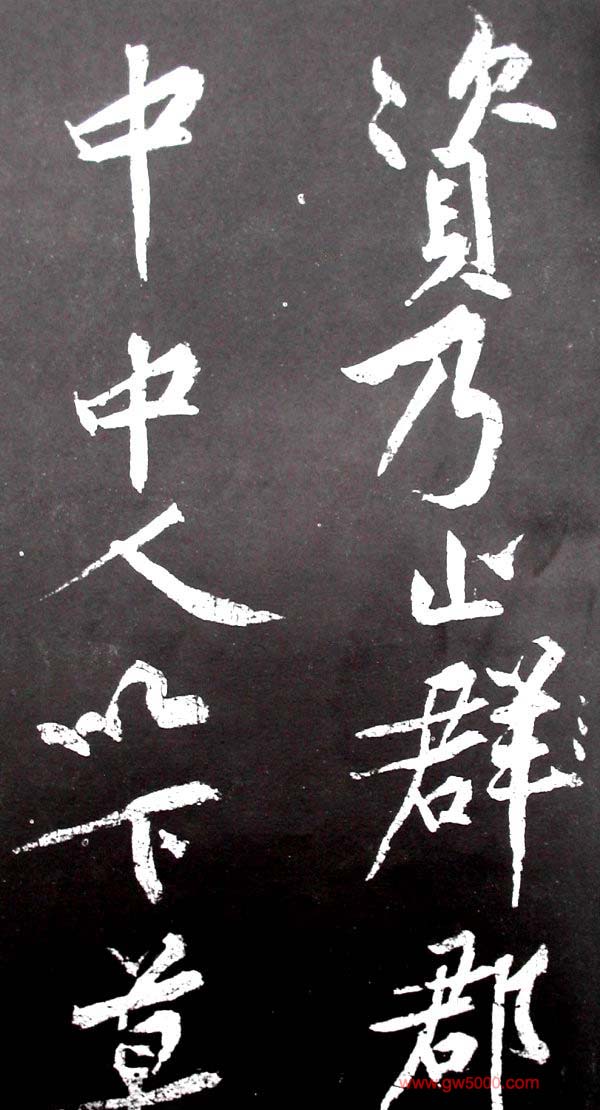 資乃止群郡
中中人以下
www.gw5000.com